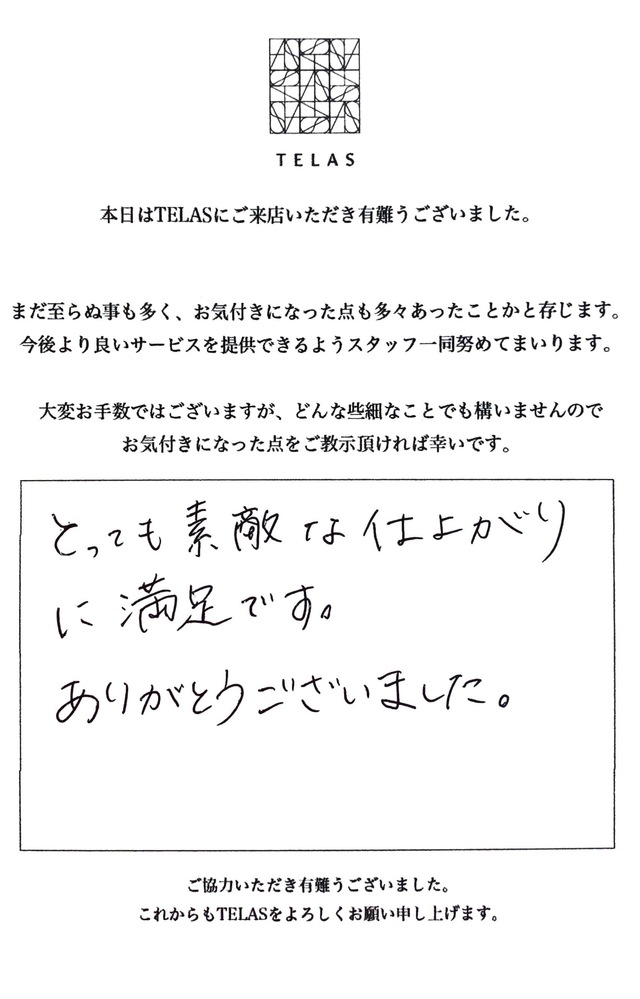 TELAS
本日はTELASにご来店いただき有難うございました。
まだ至らぬ事も多く、お気付きになった点も多々あったことかと存じます。
今後より良いサービスを提供できるようスタッフ一同努めてまいります。
大変お手数ではございますが、どんな些細なことでも構いませんので
お気付きになった点をご教示頂ければ幸いです。
とっても素敵な仕上がり
に満足です。
ありがとうございました。
ご協力いただき有難うございました。
これからもTELASをよろしくお願い申し上げます。